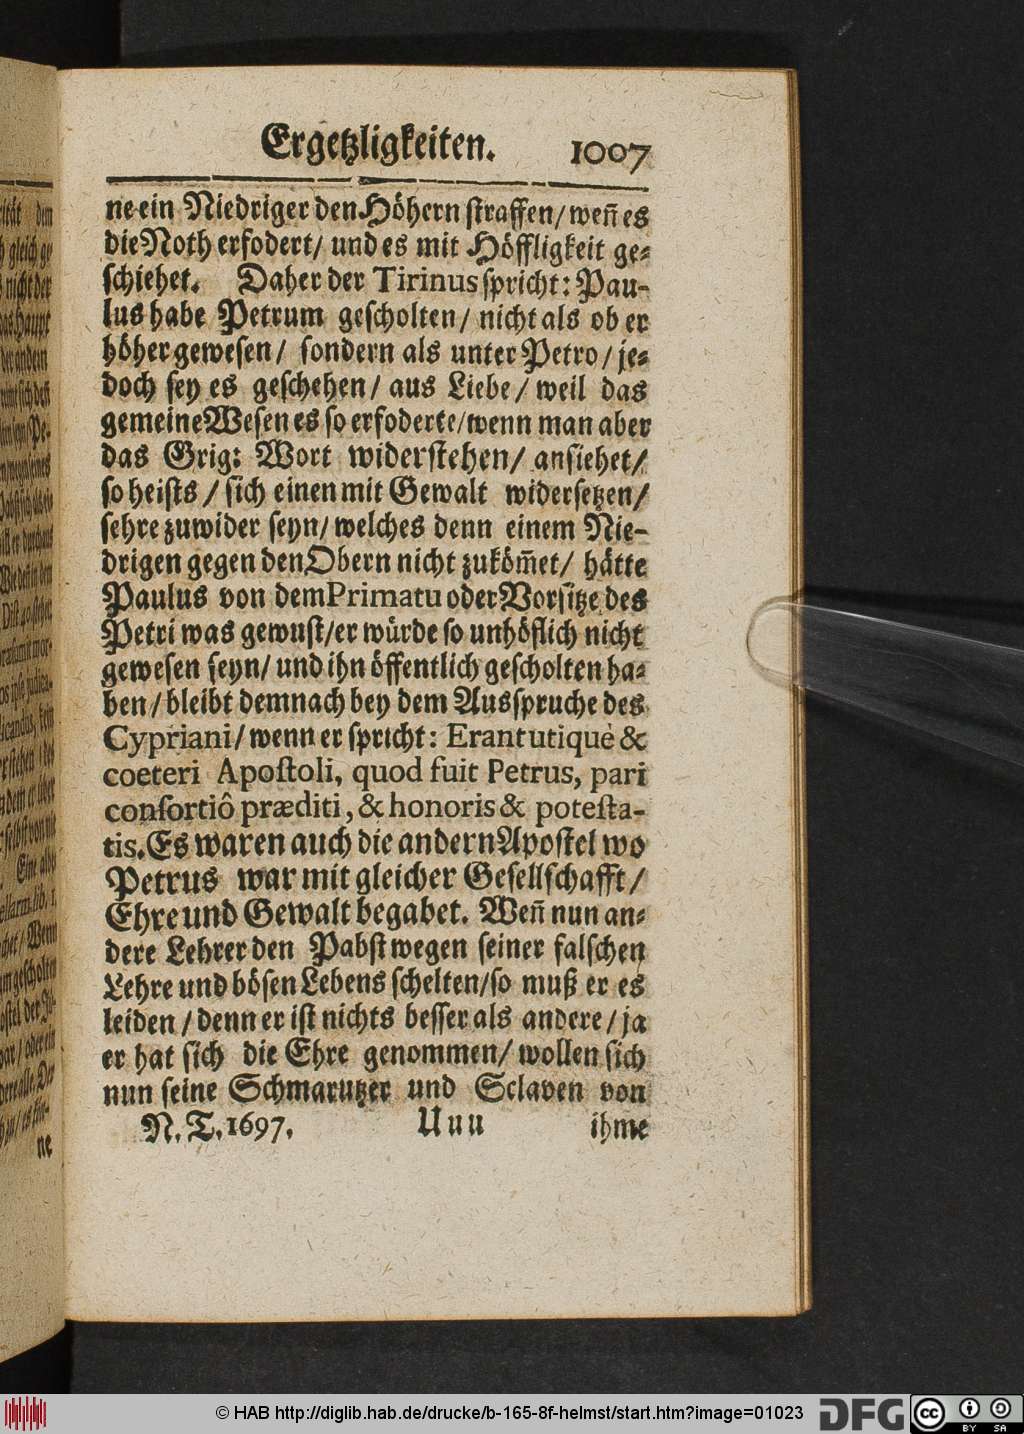 Ergetzligkeiten. 1007
ne ein Niedriger den Höhern straffen/ wen̄ es
die Noth erfodert/ und es mit Höffligkeit ge-
schiehet. Daher der Tirinus spricht: Pau-
lus habe Petrum gescholten/ nicht als ob er
höher gewesen/ sondern als unter Petro/ je-
doch sey es geschehen/ aus Liebe/ weil das
gemeine Wesen es so erfoderte/ wenn man aber
das Grig: Wort widerstehen/ ansiehet/
so heists/ sich einen mit Gewalt widersetzen/
sehre zuwider seyn/ welches denn einem Nie-
drigen gegen den Obern nicht zuköm̄et/ hätte
Paulus von dem Primatu oder Vorsitze des
Petri was gewust/ er würde so unhöflich nicht
gewesen seyn/ und ihn öffentlich gescholten ha-
ben/ bleibt demnach bey dem Ausspruche des
Cypriani/ wenn er spricht: Erant utiquè &
coeteri Apostoli, quod fuit Petrus, pari
consortiô præditi, & honoris & potesta-
tis. Es waren auch die andern Apostel wo
Petrus war mit gleicher Gesellschafft/
Ehre und Gewalt begabet. Wen̄ nun an-
dere Lehrer den Pabst wegen seiner falschen
Lehre und bösen Lebens schelten/ so muß er es
leiden/ denn er ist nichts besser als andere/ ja
er hat sich die Ehre genommen/ wollen sich
nun seine Schmarutzer und Sclaven von
N. T. 1697. Uuu ihme
© HAB http://diglib.hab.de/drucke/b-165-8f-helmst/start.htm?image=01023
DFG
cc BY SA